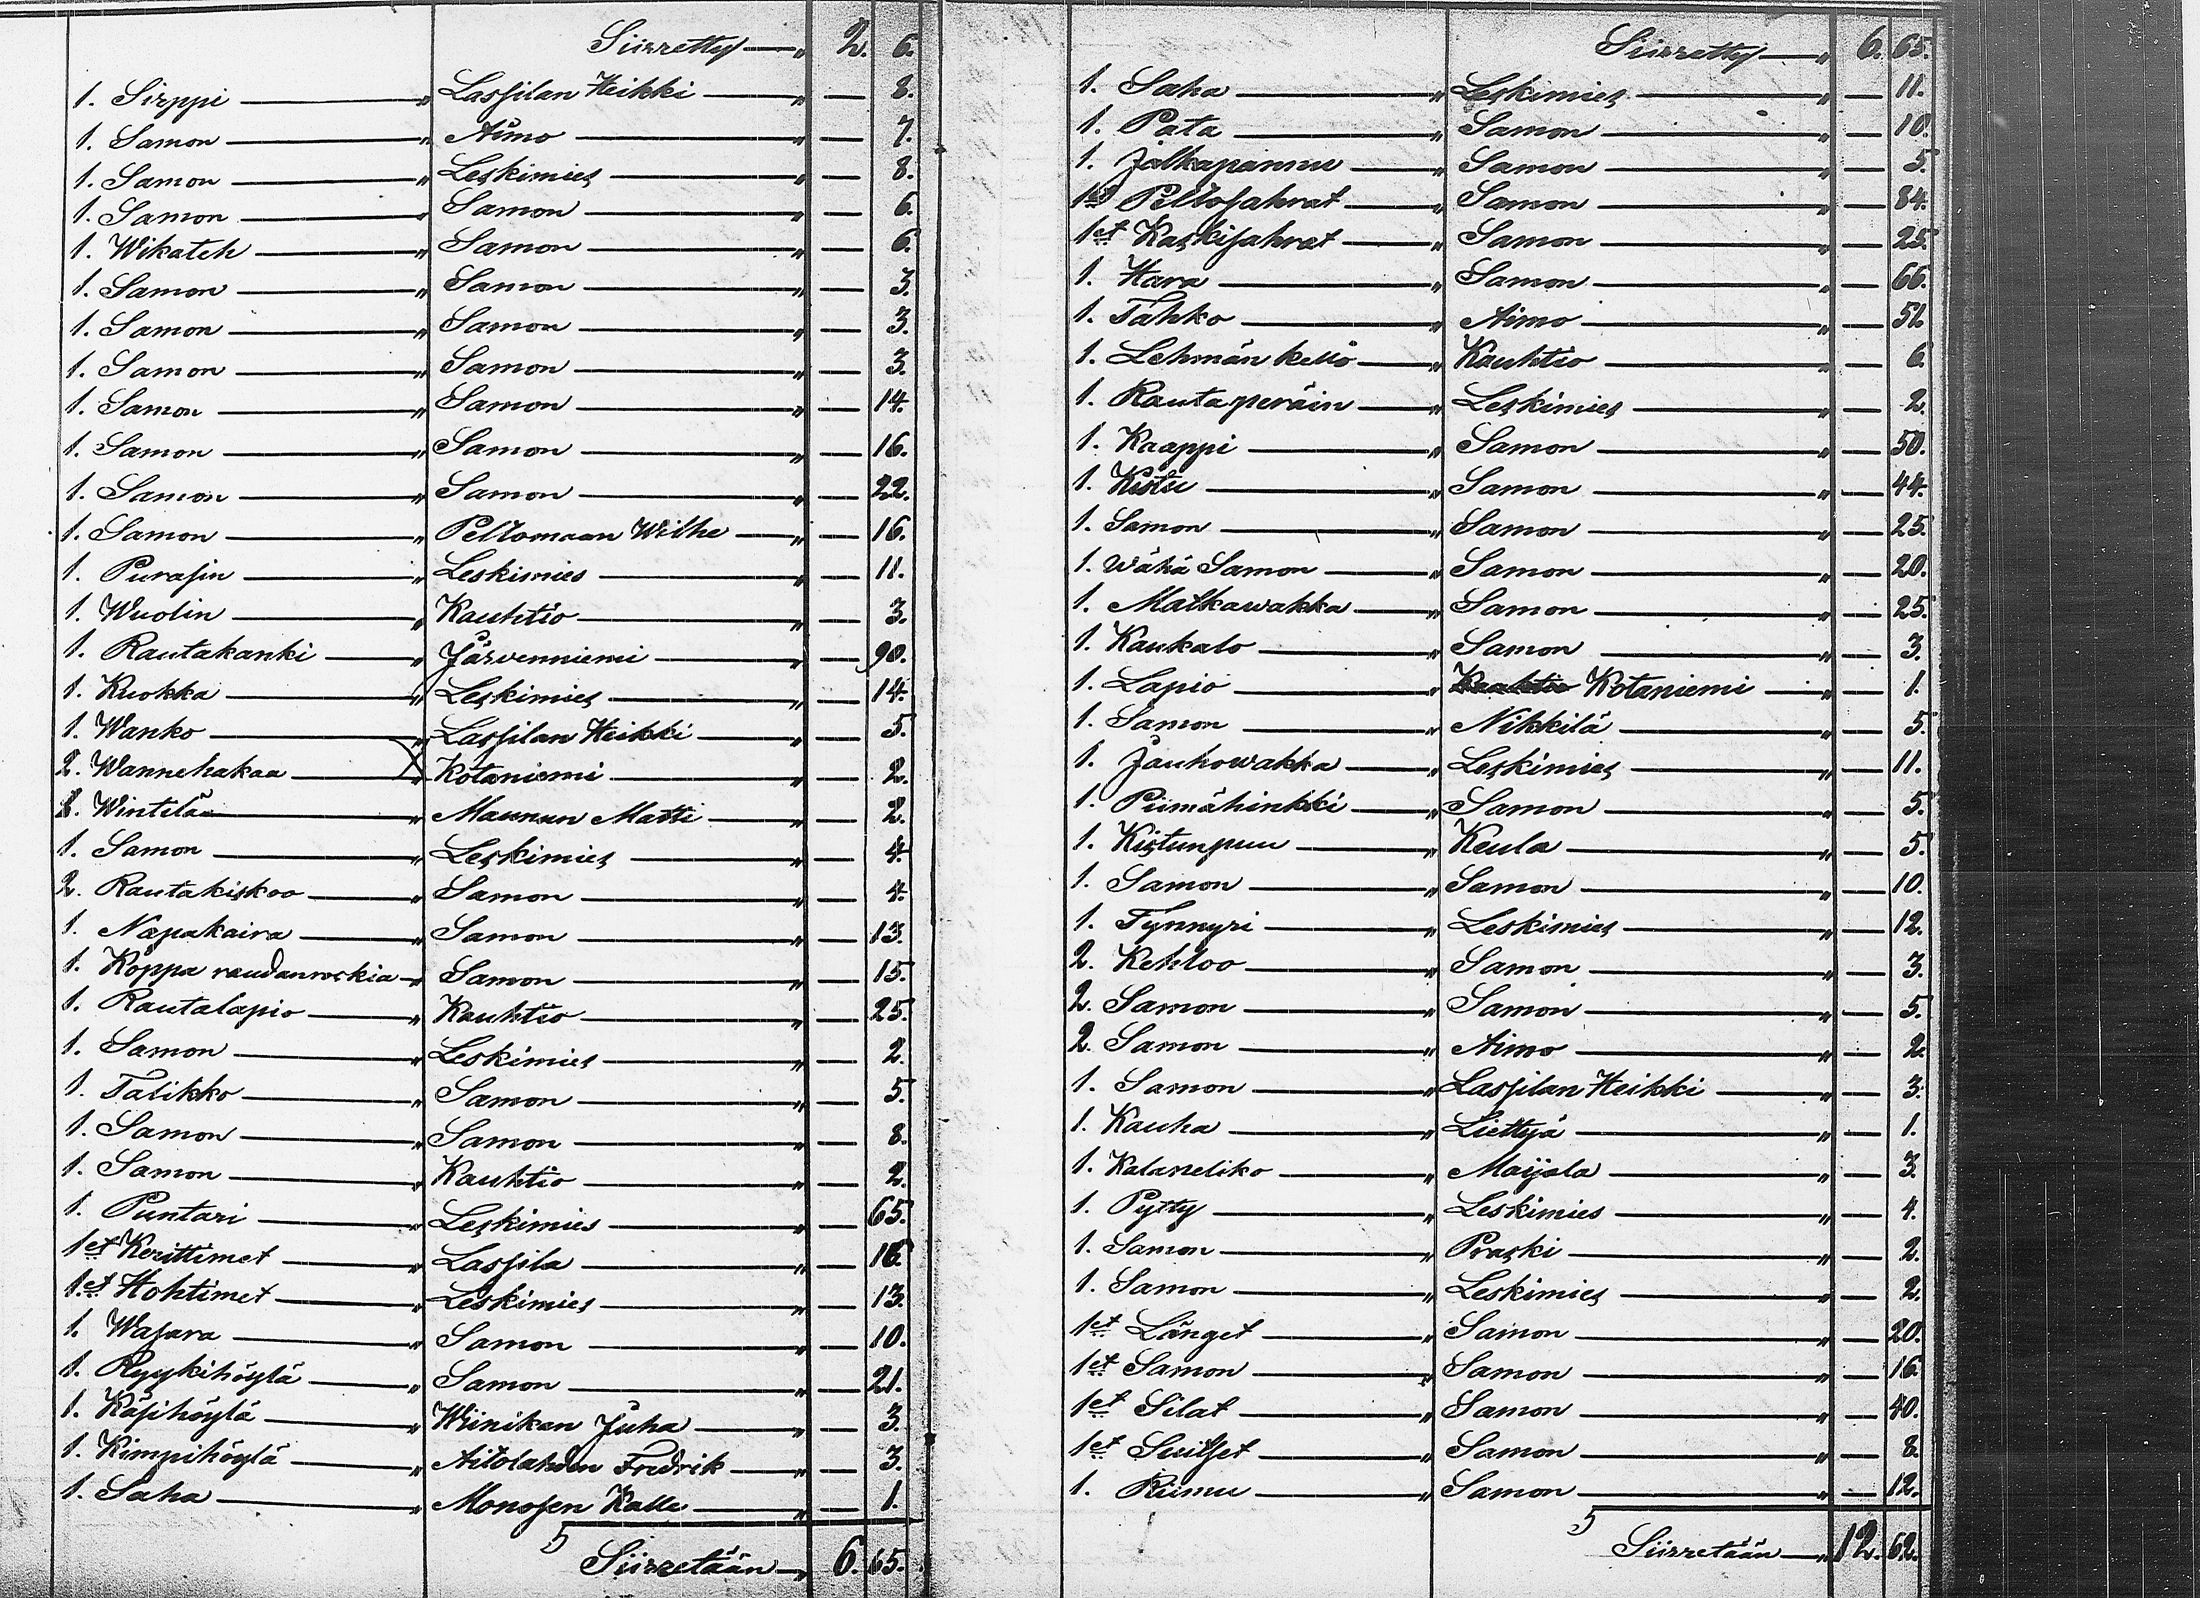 Siirretty — „ 2. 6.
1. Sirppi — „ Lassilan Heikki — „ — 8.
1. Samon — „ Aimo — „ — 7.
1. Samon — „ Leskimies — „ — 8.
1. Samon — „ Samon — „ — 6.
1. Wikateh — „ Samon — „ — 6.
1. Samon — „ Samon — „ — 3.
1. Samon — „ Samon — „ — 3.
1. Samon — „ Samon — „ — 3.
1. Samon — „ Samon — „ — 14.
1. Samon — „ Samon — „ — 16.
1. Samon — „ Samon — „ — 22.
1. Samon — „ Peltomaan Wilhe — „ — 16.
1. Purasin — „ Leskimies — „ — 11.
1. Wuolin — „ Kauhtio — „ — 3.
1. Rautakanki — „ Järvenniemi — „ — 90.
1. Kuokka — „ Leskimies — „ — 14.
1. Wanko — „ Lassilan Heikki — „ — 5.
2. Wannehakaa — „ Kotaniemi — „ — 2.
Wintilää — „ Maunun Matti — „ — 2.
1. Samon — „ Leskimies — „ — 4.
2. Rautakiskoo — „ Samon — „ — 4.
1. Napakaira — „ Samon — „ — 13.
1. Koppa raudanroskia — „ Samon — „ — 15.
1. Rautalapio — „ Kauhtio — „ — 25.
1. Samon — „ Leskimies — „ — 2.
1. Talikko — „ Samon — „ — 5.
1. Samon — „ Samon — „ — 8.
1. Samon — „ Kauhtio — „ — 2.
1. Puntari — „ Leskimies — „ — 65.
1et Kerittimet — „ Lassila — „ — 16.
1et Hohtimet — „ Leskimies — „ — 13.
1. Wasara — „ Samon — „ — 10.
1. Ryykihöylä — „ Samon — „ — 21.
1. Käsihöylä — „ Wiinikan Juha — „ — 3.
1. Kimpihöylä — „ Aitolahden Fredrik — „ — 3.
1. Saha — „ Monosen Kalle — „ — 1.
Siirretään — „ 6. 65.
Siirretty — „ 6. 65.
1. Saha — „ Leskimies — „ — 11.
1. Pata — „ Samon — „ — 10.
1. Jalkapannu — „ Samon — „ — 5.
1et Peltosahrat — „ Samon — „ — 84.
1et Kaskisahrat — „ Samon — „ — 25.
1. Hara — „ Samon — „ — 66.
1. Tahko — „ Aimo — „ — 51.
1. Lehmän kello — „ Kauhtio — „ — 6.
1. Rauta peräin — „ Leskimies — „ — 2.
1. Kaappi — „ Samon — „ — 50.
1. Kistu — „ Samon — „ — 44.
1. Samon — „ Samon — „ — 25.
1. Wähä Samon — „ Samon — „ — 20.
1. Matkawakka — „ Samon — „ — 25.
1. Kaukalo — „ Samon — „ — 3.
1. Lapio — „ Kauhtio Kotaniemi — „ — 1.
1. Samon — „ Nikkilä — „ — 5.
1. Jauhowakka — „ Leskimies — „ — 11.
1. Piimähinkki — „ Samon — „ — 5.
1. Kistunpuu — „ Keula — „ — 5.
1. Samon — „ Samon — „ — 10.
1. Tynnyri — „ Leskimies — „ — 12.
2. Kehloo — „ Samon — „ — 3.
2. Samon — „ Samon — „ — 5.
2. Samon — „ Aimo — „ — 2.
1. Samon — „ Lassilan Heikki — „ — 3.
1. Kauha — „ Liettyä — „ — 1.
1. Kalaneliko — „ Maijala — „ — 3.
1. Pytty — „ Leskimies — „ — 4.
1. Samon — „ Praski — „ — 2.
1. Samon — „ Leskimies — „ — 2.
1et Länget — „ Samon — „ — 20.
1et Samon — „ Samon — „ — 16.
1et Silat — „ Samon — „ — 40.
1et Suitset — „ Samon — „ — 8.
1. Riimu — „ Samon — „ — 12.
Siirretään — „ 12. 62.